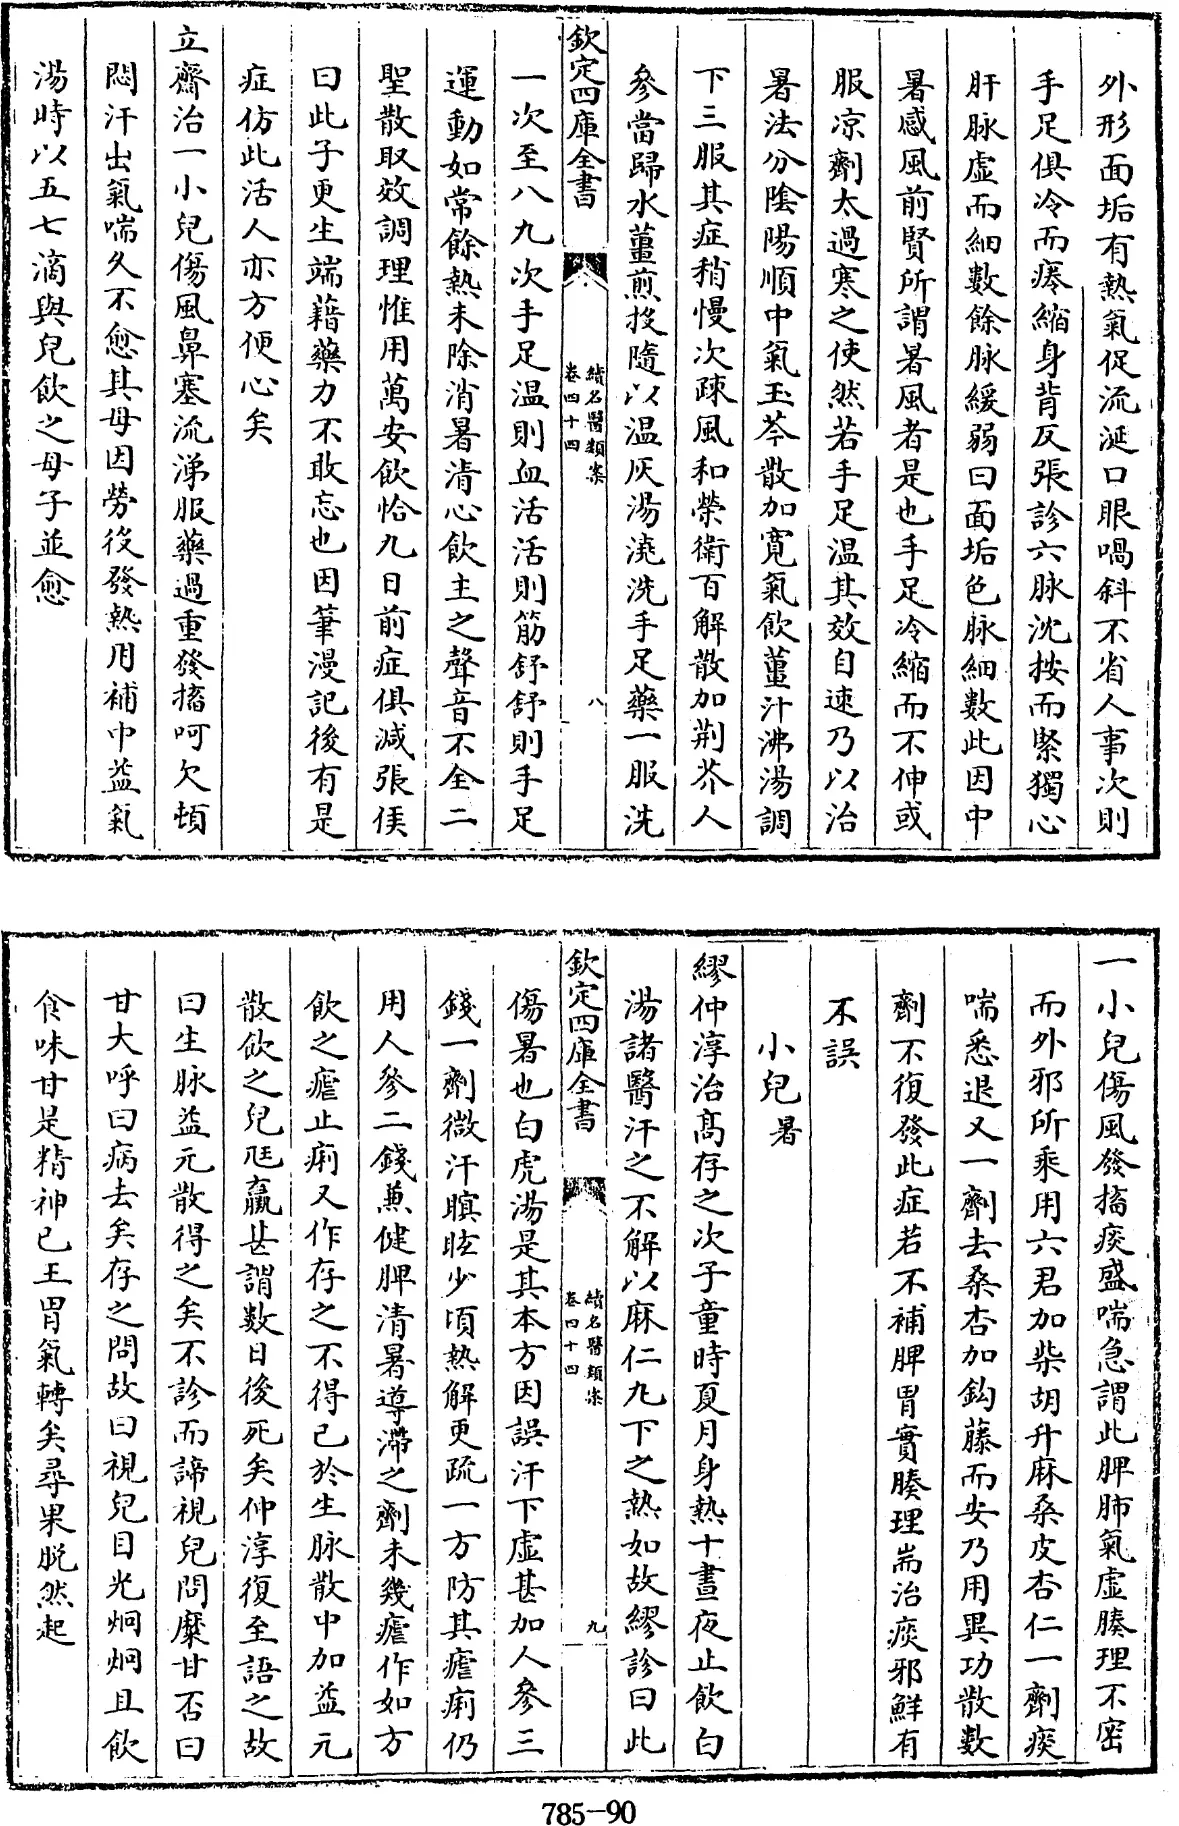 外形面垢有熱氣促流涎口眼喎斜不省人事次則
手足俱冷而瘮縮身背反張診六脉沈按而緊獨心
肝脉虛而細數餘脉緩弱曰面垢色脉細數此因中
暑感風前賢所謂暑風者是也手足冷縮而不伸或
服凉劑太過寒之使然若手足温其效自速乃以治
暑法分陰陽順中氣玉苓散加寛氣飲薑汁沸湯調
下三服其症稍慢次疎風和榮衛百解散加荆芥人
參當歸水薑煎投隨以温灰湯澆洗手足藥一服洗
欽定四庫全書
續名醫類案
卷四十四
八
一次至八九次手足温則血活活則筋舒舒則手足
運動如常餘熱未除消暑清心飲主之聲音不全二
聖散取效調理惟用萬安飲恰九日前症俱减張侯
曰此子更生端藉藥力不敢忘也因筆漫記後有是
症仿此活人亦方便心矣
立齋治一小兒傷風鼻塞流涕服藥過重發搐呵欠頓
悶汗出氣喘久不愈其母因勞役發熱用補中益氣
湯時以五七滴與兒飲之母子並愈
一小兒傷風發搐痰盛喘急謂此脾肺氣虛腠理不密
而外邪所乘用六君加柴胡升麻桑皮杏仁一劑痰
喘悉退又一劑去桑杏加鈎藤而安乃用異功散數
劑不復發此症若不補脾胃實腠理耑治痰邪鮮有
不誤
小兒暑
繆仲淳治髙存之次子童時夏月身熱十晝夜止飲白
湯諸醫汗之不解以麻仁丸下之熱如故繆診曰此
欽定四庫全書
續名醫類案
卷四十四
九
傷暑也白虎湯是其本方因誤汗下虛甚加人參三
錢一劑微汗瞑眩少頃熱解更疏一方防其瘧痢仍
用人參二錢兼健脾清暑導滯之劑未幾瘧作如方
飲之瘧止痢又作存之不得已於生脉散中加益元
散飲之兒尫羸甚謂數日後死矣仲淳復至語之故
曰生脉益元散得之矣不診而諦視兒問糜甘否曰
甘大呼曰病去矣存之問故曰視兒目光烱烱且飲
食味甘是精神已王胃氣轉矣尋果脱然起
785-90